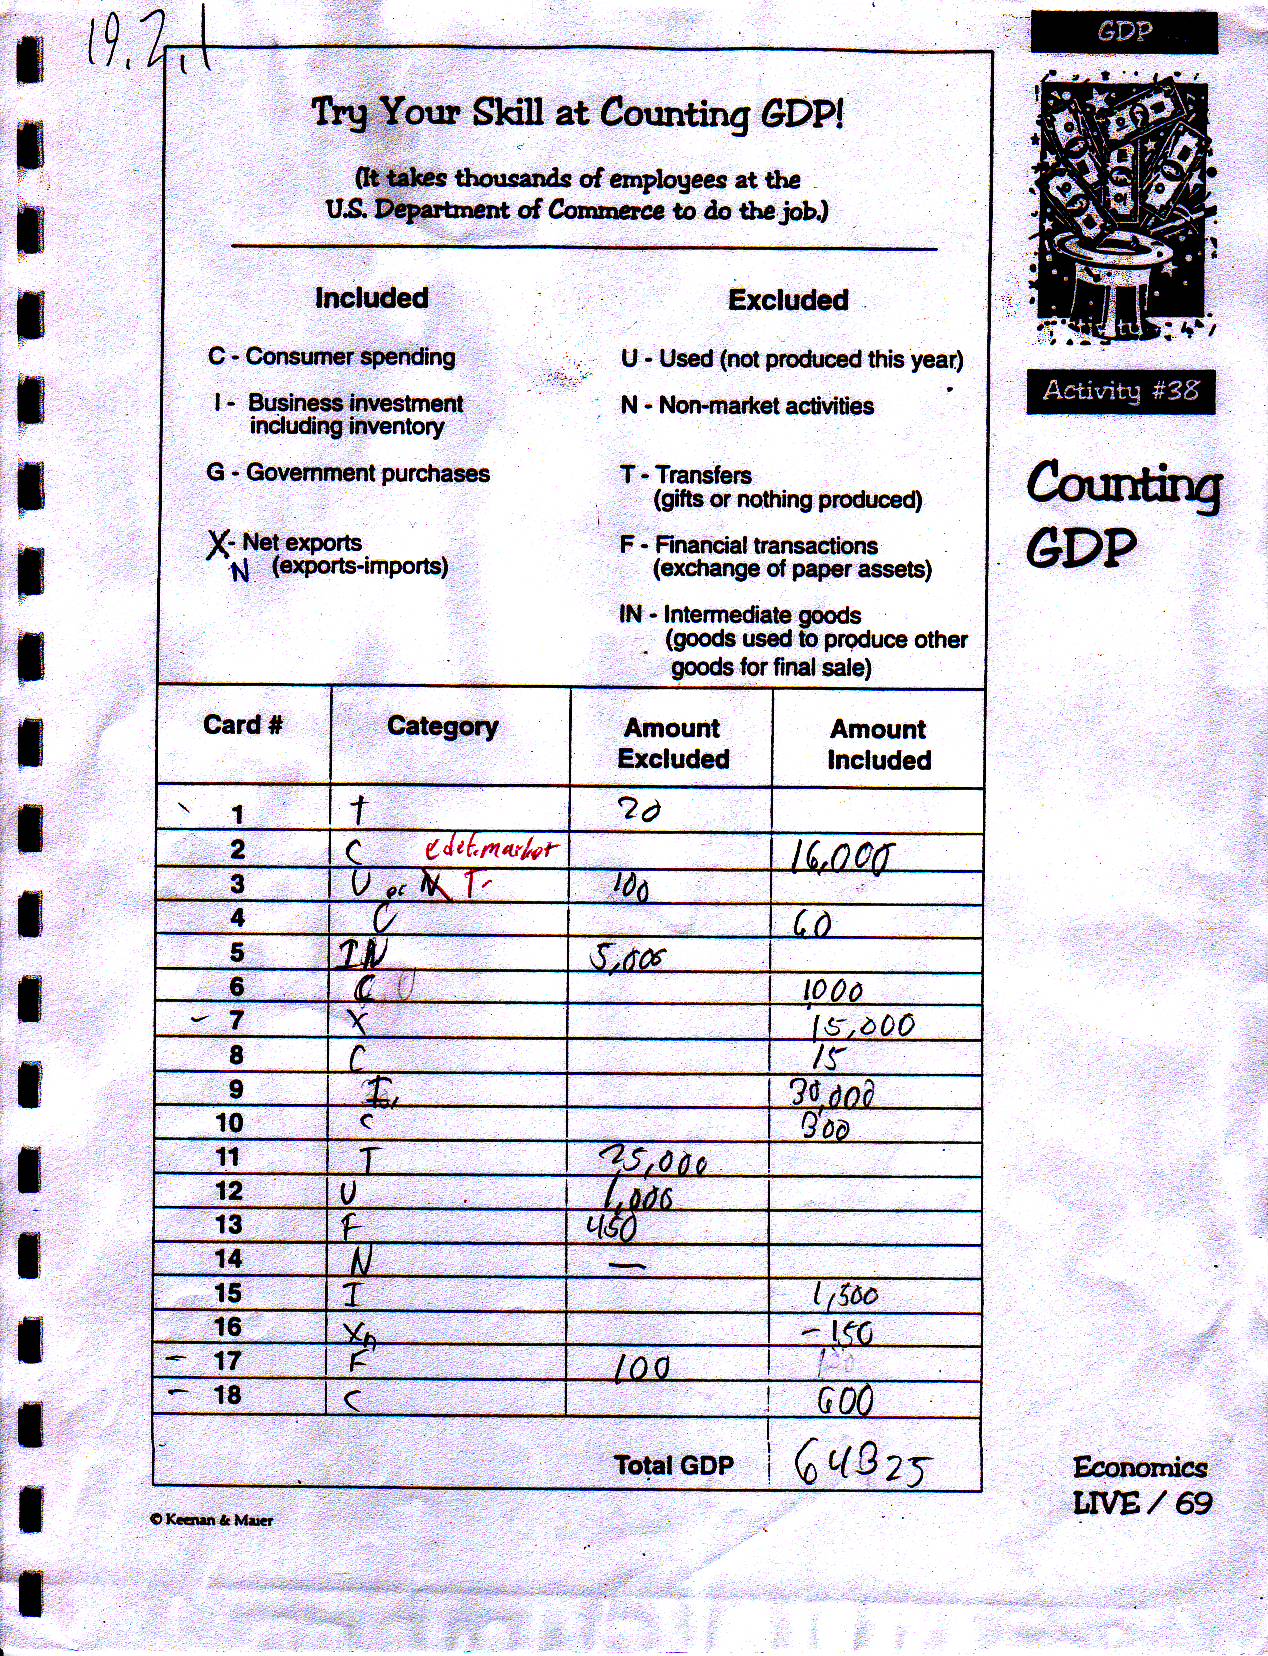 19.2.1
GDP
Try Your Skill at Counting GDP!
(It takes thousands of employees at the
U.S. Department of Commerce to do the job.)
Included
Excluded
C - Consumer spending
U - Used (not produced this year)
I - Business investment
including inventory
N - Non-market activities
G - Government purchases
T - Transfers
(gifts or nothing produced)
X - Net exports
N (exports-imports)
F - Financial transactions
(exchange of paper assets)
IN - Intermediate goods
(goods used to produce other
goods for final sale)
Activity #38
Counting
GDP
Card # Category Amount Excluded Amount Included
1 T 20
2 C 16,000
3 U or N T 100
4 C 60
5 IN 5,000
6 C 1000
7 X 15,000
8 C 15
9 I 30,000
10 C 300
11 T 25,000
12 U 1,000
13 F 450
14 N —
15 I 1,500
16 Xn -150
17 F 100
18 C 600
Total GDP 64325
© Keenan & Maier
Economics
LIVE / 69